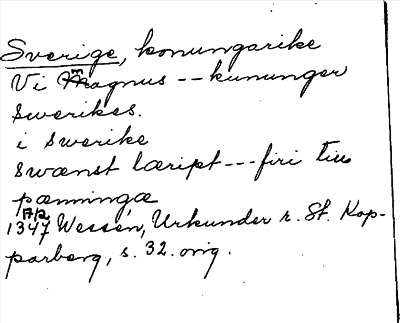 Sverige, konungarike
Vi Magnus -- kununger
swerikes.
i swerike
swænst læript --- firi tiu
pænningæ
17/2
1347 Wessén, Urkunder r. St. Kop-
parberg, s. 32. orig.